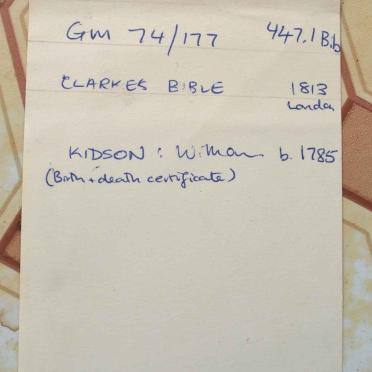 GM 74/177 447.1 B.b
CLARKES BIBLE 1813
London
KIDSON : William b. 1785
(Birth + death certificate)